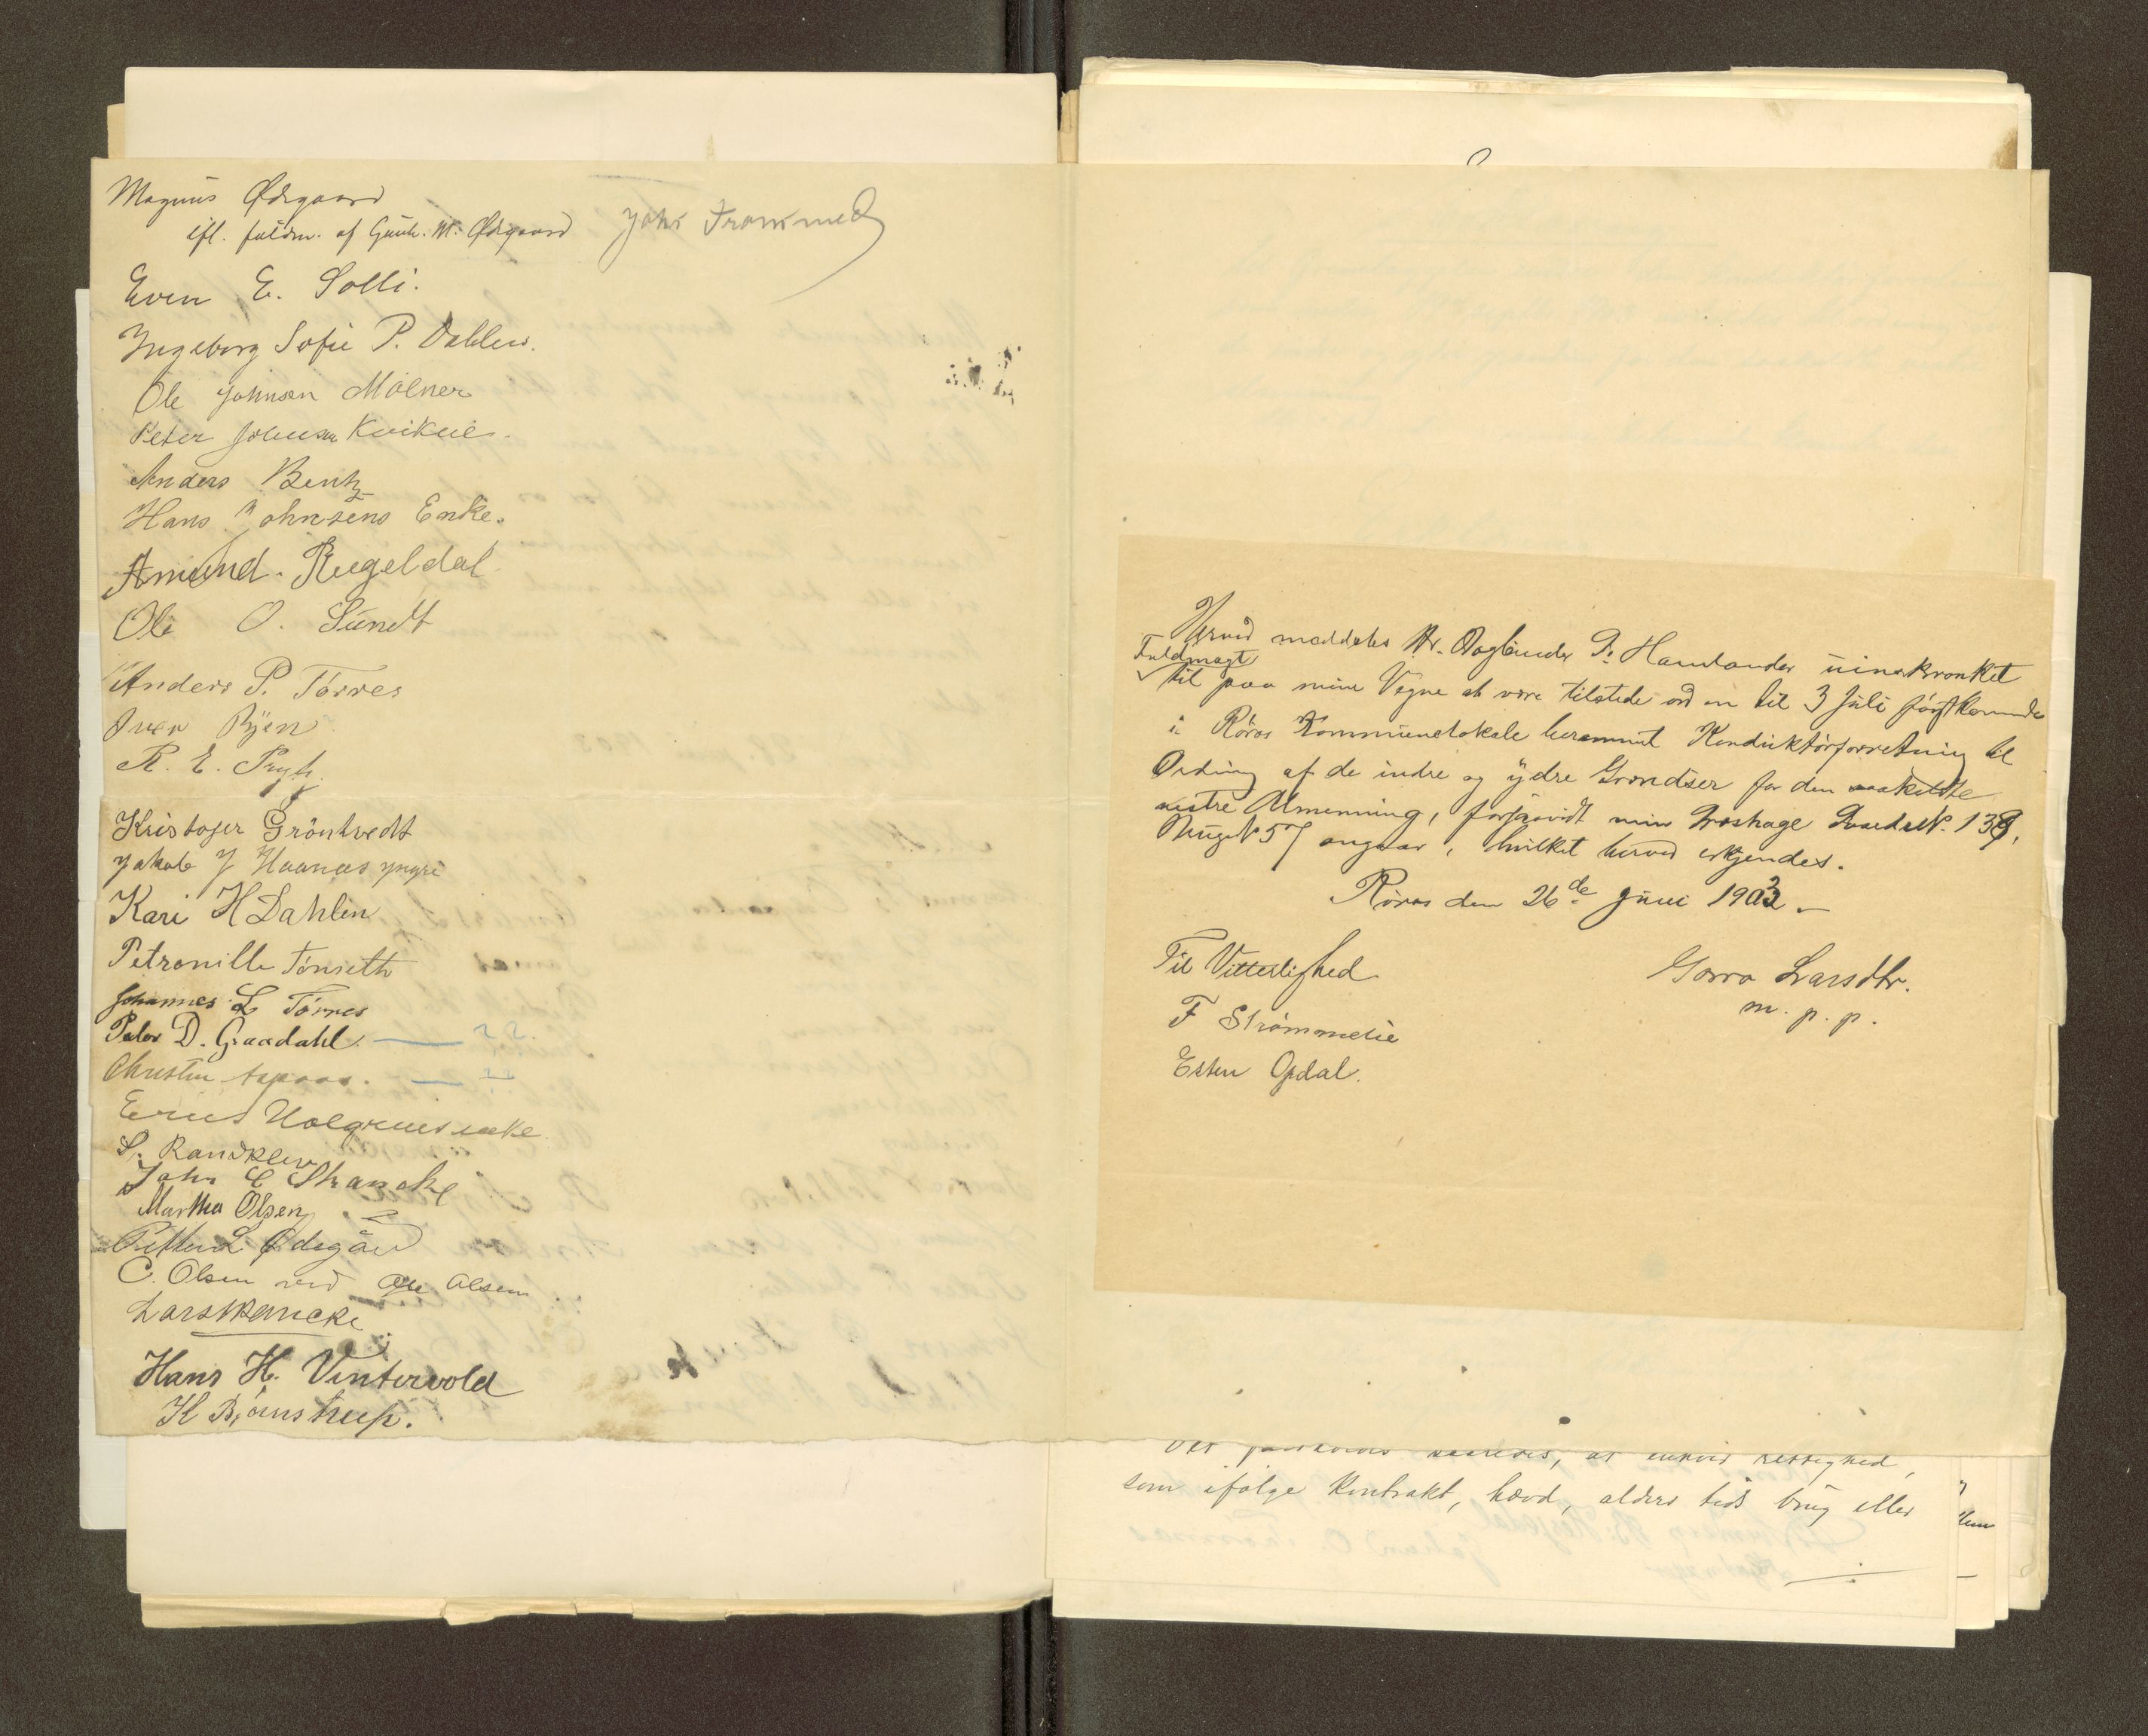 Magnus Ødegaard
ifl. fuldm. af Gunh. M. Ødegaard
John Trommed
Even E. Solli.
Ingeborg Sofie P. Dahlen.
Ole Johnsen Mølner
Peter Johnsen Kvikne.
Anders Bentz
Hans Johnsens Enke.
Amund. Rugeldal.
Ole O. Sundt
Anders P. Tørres
Iver Ryen
R. E. Prytz.
Kristofer Grönhvedt
Jakob J Haanæs yngre
Kari H Dahlin
Petronille Tønseth
Johannes L Tørres
Peder D. Graadahl.
Christen Aspaas.
Eriks Holgrens enke.
S. Randklev
John E Skancke
Martha Olsen
Petter L Ødegård
C. Olsen ved Ole Olsen
Lars Skancke
Hans H. Vintervold
H Bjørnstrup.
Herved meddeles Hr. P. Hamlander uindskrænket
Fuldmagt
til paa mine Vegne at være tilstede ved en til 3 Juli førstkommende
i Röros Kommunelokale berammet Konduktørforretning til
Ordning af de indre og ydre Grændser for den saakaldte
vestre Almenning, forsaavidt min Græshage 138,
57 angaar, hvilket herved erkjendes.
Röros den 26de Juni 1903.
Til Vitterlighed
F Strømmevie
Esten Opdal.
Gorro Larsdtr.
m. p. p.
at enhver rettighed,
som ifølge Kontrakt, hævd, alders tids brug eller